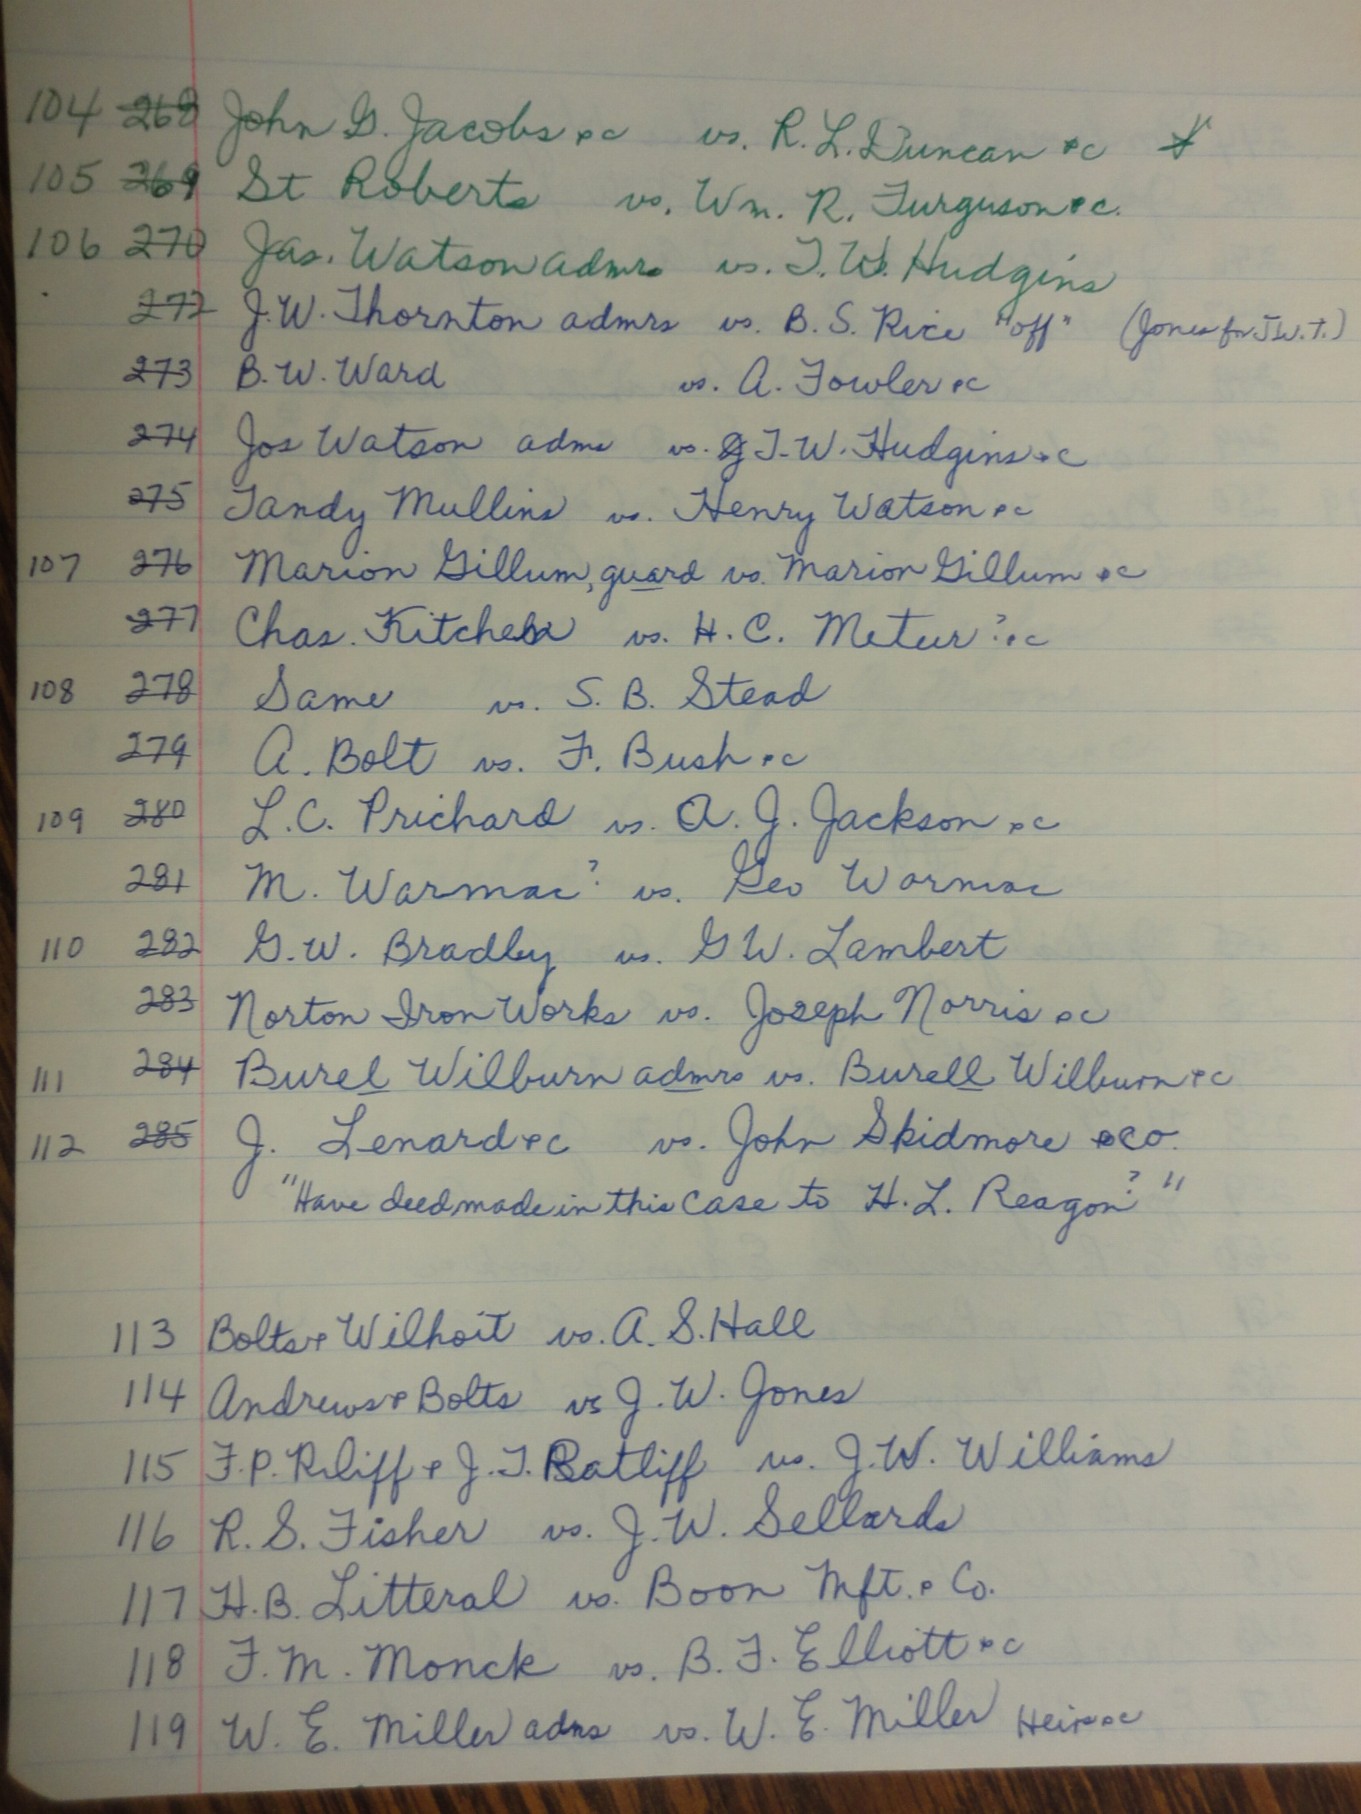 104 268 John G. Jacobs &c vs. R. L. Duncan &c
105 269 St Roberts vs. Wm. R. Furguson &c.
106 270 Jas. Watson admrs vs. T. W. Hudgins
272 J. W. Thornton admrs vs. B. S. Rice "off" (Jones for J.W.T.)
273 B. W. Ward vs. A. Fowler &c
274 Jos Watson adms vs. T. W. Hudgins &c
275 Tandy Mullins vs. Henry Watson &c
107 276 Marion Gillum, guard vs. Marion Gillum &c
277 Chas. Kitchen vs. H. C. Meteur ? &c
108 278 Same vs. S. B. Stead
279 A. Bolt vs. F. Bush &c
109 280 L. C. Prichard vs. A. J. Jackson &c
281 M. Warmac ? vs. Geo Warmac
110 282 G. W. Bradley vs. G W. Lambert
283 Norton Iron Works vs. Joseph Norris &c
111 284 Burel Wilburn admrs vs. Burell Wilburn &c
112 285 J. Lenard &c vs. John Skidmore & co.
"Have deed made in this case to H. L. Reagon ? "
113 Bolts & Wilhoit vs. A. S. Hall
114 Andrews & Bolts vs J. W. Jones
115 F. P. & J. T. Ratliff vs. J. W. Williams
116 R. S. Fisher vs. J. W. Sellards
117 H. B. Litteral vs. Boon Mft. & Co.
118 F. M. Monck vs. B. F. Elliott &c
119 W. E. Miller adms vs. W. E. Miller Heirs &c